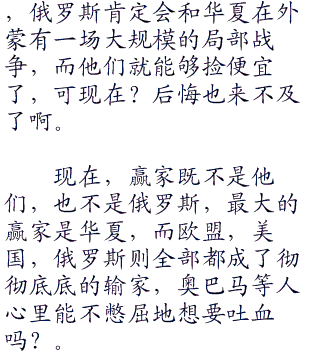 ，俄罗斯肯定会和华夏在外
蒙有一场大规模的局部战
争，而他们就能够捡便宜
了，可现在？后悔也来不及
了啊。
现在，赢家既不是他
们，也不是俄罗斯，最大的
赢家是华夏，而欧盟，美
国，俄罗斯则全部都成了彻
彻底底的输家，奥巴马等人
心里能不憋屈地想要吐血
吗？。